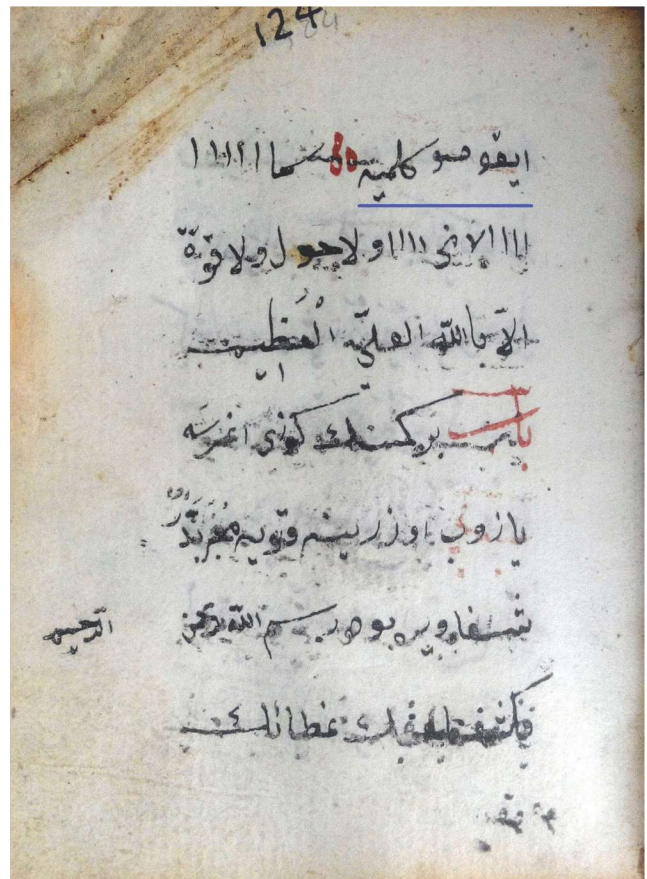 124
ايقو صو كلميه ااااااا
اااالانى ااااو لاحول ولا قوّة
الاّ باالله العلىّ الْعَظيم
باب بر كمسنك كوزى اغرسه
يازوب اوزرينه قويه مجربدر
شفا ويره بودر بسم الله الرحمن الرحيم
فكشفنا عنك غطائك